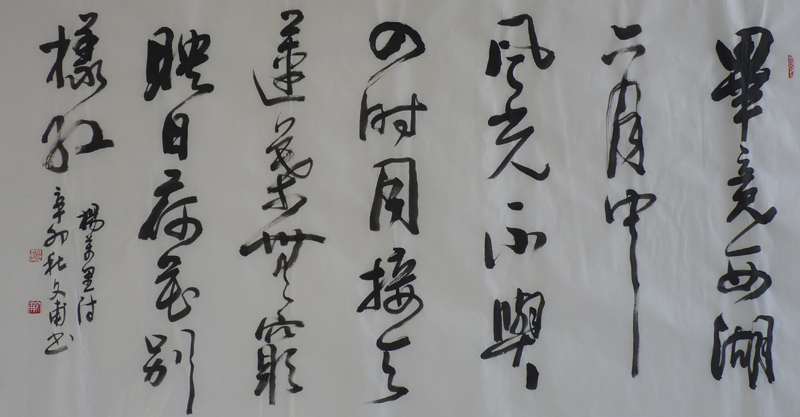 畢竟西湖
六月中
風光不與
四时同接天
蓮葉無窮
映日荷花別
樣紅
楊萬里诗
辛卯秋文甫书